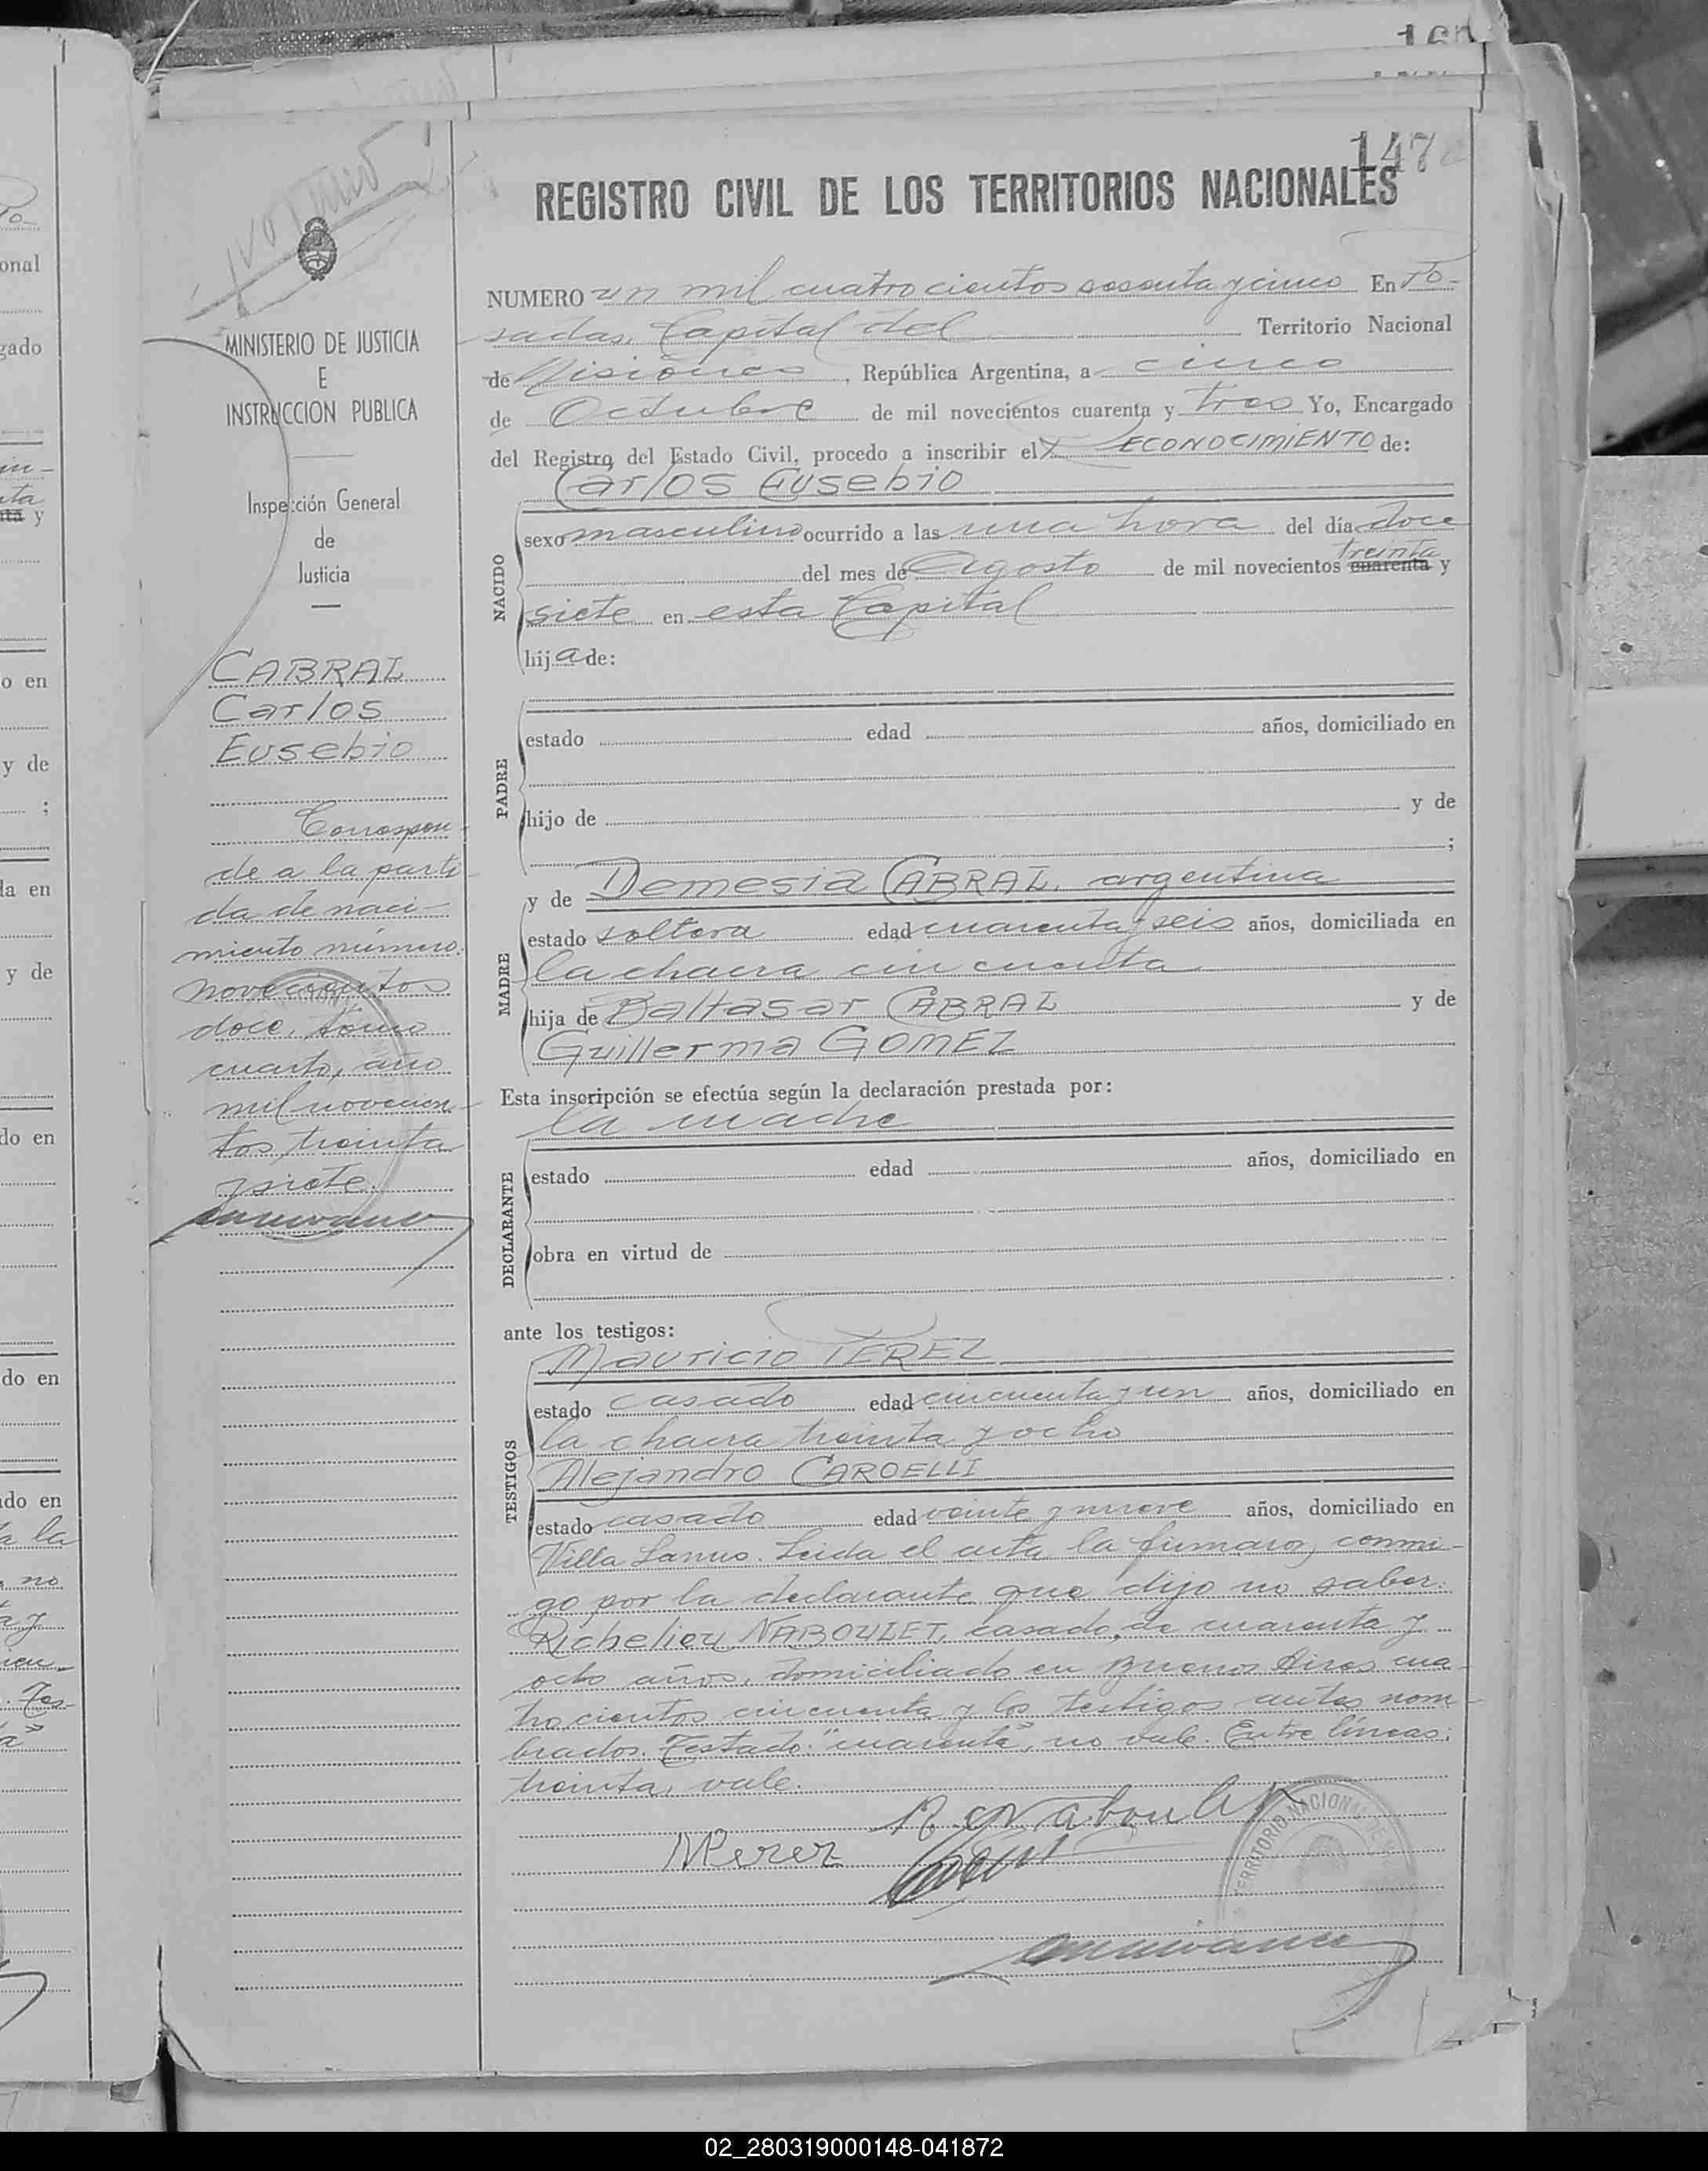 147
REGISTRO CIVIL DE LOS TERRITORIOS NACIONALES
NUMERO un mil cuatrocientos sesenta y cinco En Po-
sadas, Capital del Territorio Nacional
de Misiones, República Argentina, a cinco
de Octubre de mil novecientos cuarenta y tres Yo, Encargado
del Registro del Estado Civil, procedo a inscribir el RECONOCIMIENTO de:
Carlos Eusebio
NACIDO
sexo masculino ocurrido a las una hora del día doce
treinta
del mes de Agosto de mil novecientos cuarenta y
siete en esta Capital
hija de:
PADRE
estado edad años, domiciliado en
hijo de y de
;
MADRE
y de Demesia CABRAL, argentina
estado soltera edad cuarenta y seis años, domiciliada en
la chacra cincuenta
hija de Baltasar CABRAL y de
Guillerma GOMEZ
Esta inscripción se efectúa según la declaración prestada por:
la madre
DECLARANTE
estado edad años, domiciliado en
obra en virtud de
ante los testigos:
TESTIGOS
Mauricio PEREZ
estado casado edad cincuenta y un años, domiciliado en
la chacra treinta y ocho
Alejandro CAROELLI
estado casado edad veinte y nueve años, domiciliado en
Villa Lanus. Leida el acta la firmaron, conmi-
go por la declarante que dijo no saber:
Richelieu NABOULET, casado, de cuarenta y
ocho años, domiciliado en Buenos Aires cua-
trocientos cincuenta y los testigos antes nom-
brados. Testado: "cuarenta", no vale. Entre líneas:
treinta, vale.
MPerez
TERRITORIO NACIONAL DE
MINISTERIO DE JUSTICIA
E
INSTRUCCION PUBLICA
Inspección General
de
Justicia
CABRAL
Carlos
Eusebio
Correspon-
de a la parti-
da de naci-
miento número
novecientos
doce, tomo
cuarto, año
mil novecien-
tos treinta
y siete.
02_280319000148-041872